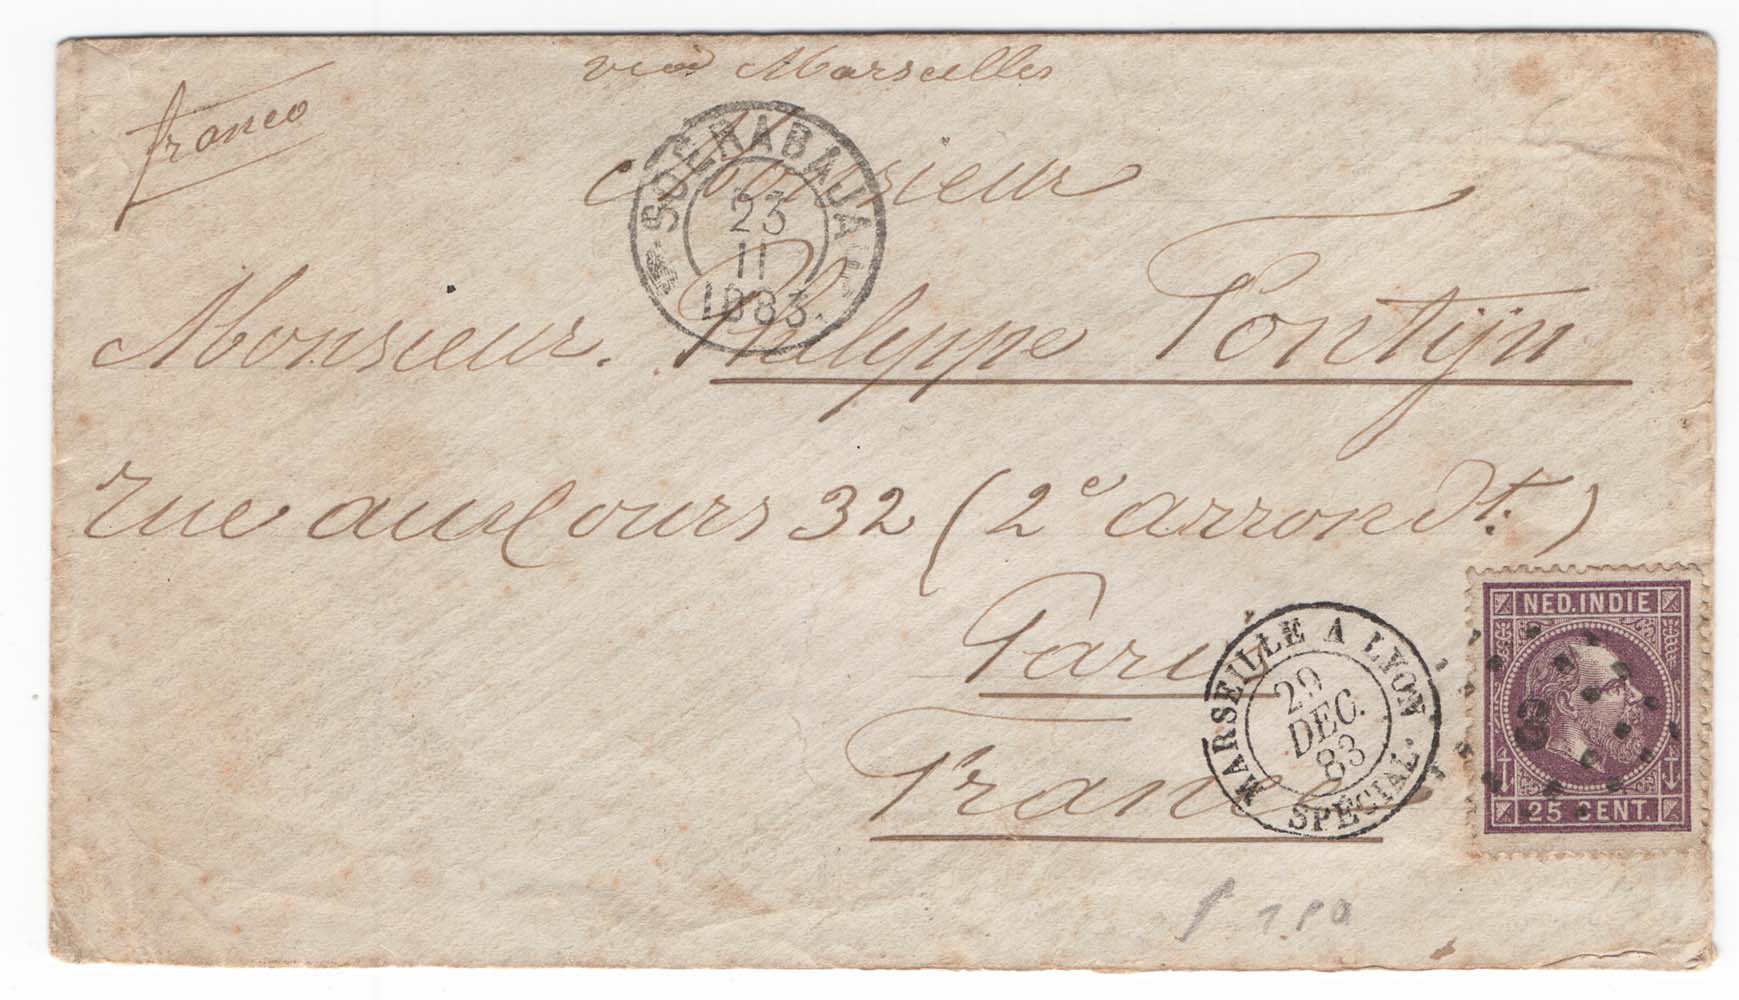 franco
via Marseilles
Monsieur
Monsieur. Philippe Pontijn
rue aux Ours 32 (2e arrondt.)
Paris
France
SOERABAJA
23
11
1883.
MARSEILLE A LYON
29
DEC.
83
SPECIAL.
NED. INDIE
25 CENT.
3